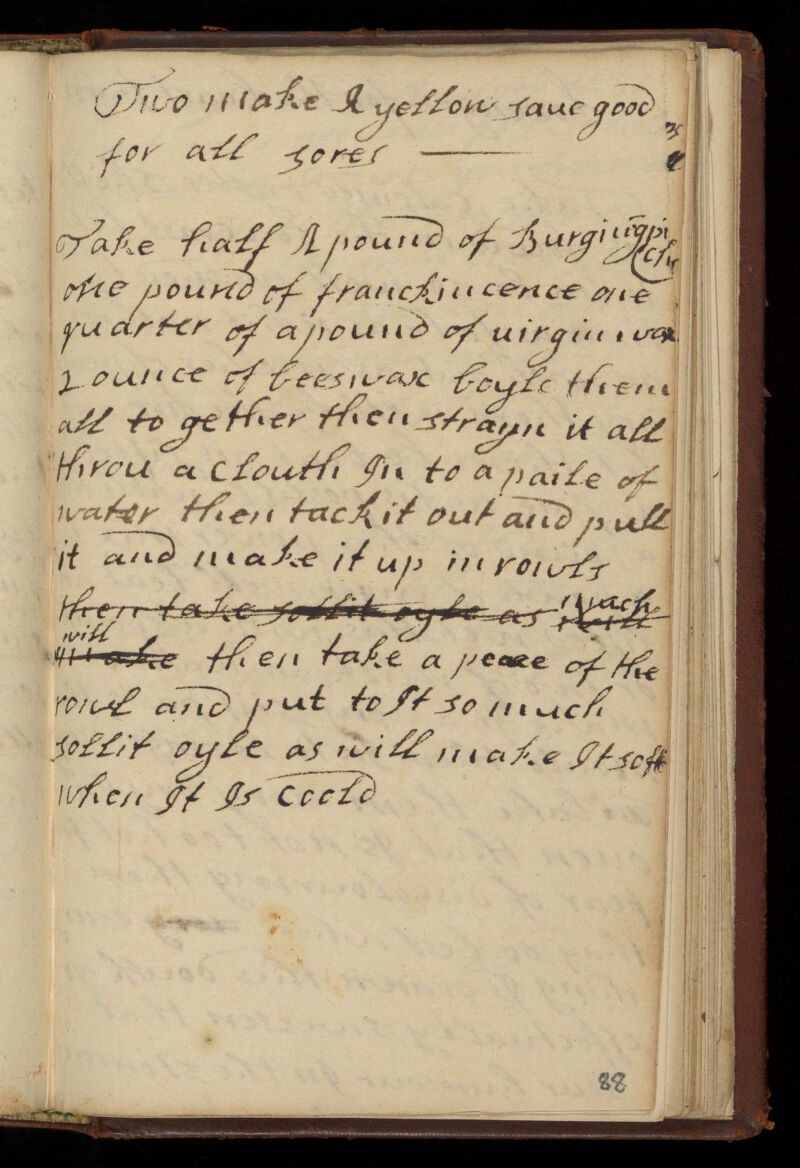 Two make A yellow saue good
for all sores
Take half A pound of Burgin pi
tch
one pound of franckincence one
quarter of a pound of uirgin wax
2 ounce of beeswax boyle them
all to gether then strayn it all
throu a clouth In to a paile of
water then tack it out and pull
it and make it up in rowls
then take sollit oyle as much
will
make then take a peace of the
rowl and put to It so much
sollit oyle as will make It soft
when It Is coold
88